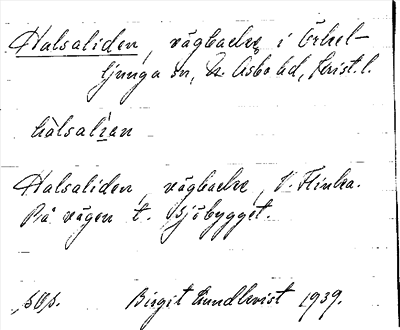 Halsaliden, vägbacke i Örkel-
ljunga sn, N. Åsbo hd, Krist. l.
hàlsalían
Halsaliden, vägbacke, V. Flinka.
På vägen t. Sjöbygget.
Birgit Lundkvist 1939.